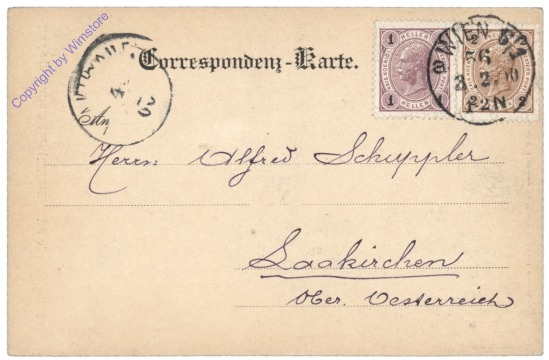 Copyright by Wimstore
Correspondenz-Karte.
1 HELLER 1
2 2
WIEN
An
Herrn Alfred Schuppler
Laakirchen
Ober. Oesterreich